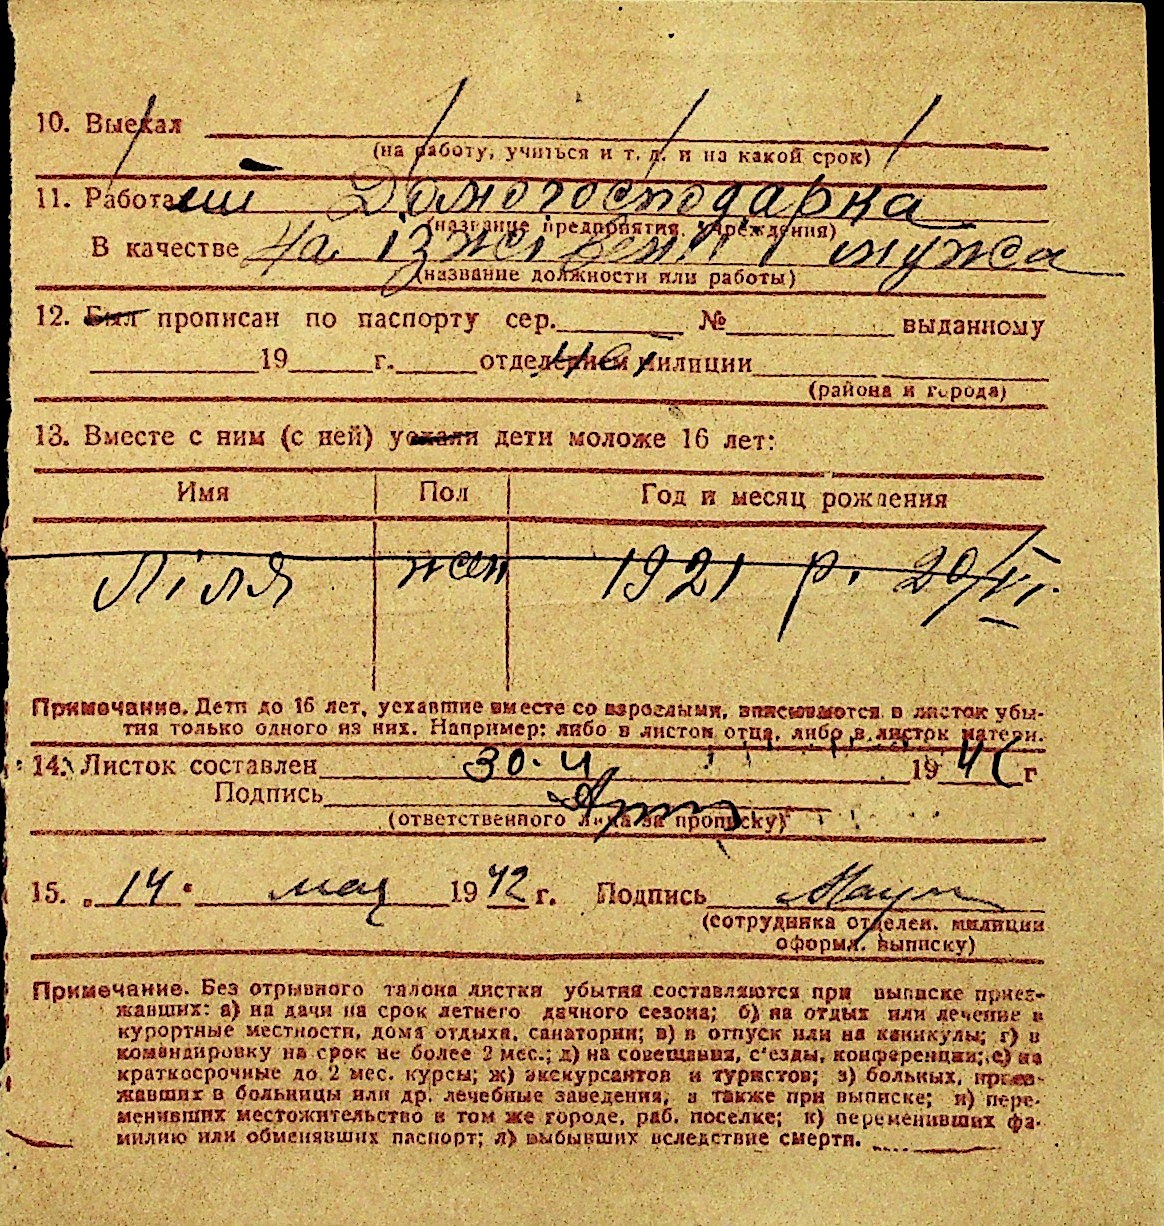 10. Выехал
(на работу, учиться и т. д. и на какой срок)
11. Работа Домогосподарка
(название предприятия, учреждения)
В качестве на іждівенії мужа
(название должности или работы)
12. Был прописан по паспорту сер. № выданному
19 г. отделением милиции
(района и города)
13. Вместе с ним (с ней) уехали дети моложе 16 лет:
Имя Пол Год и месяц рождения
Ліля жен 1921 р. 29/VI.
Примечание. Дети до 16 лет, уехавшие вместе со взрослыми, вписываются в листок убы-
тия только одного из них. Например: либо в листок отца, либо в листок матери.
14. Листок составлен 30. 19 г
Подпись
(ответственного лица за прописку)
15. 14. мая 1942 г. Подпись
(сотрудника отделен. милиции
оформл. выписку)
Примечание. Без отрывного талона листки убытия составляются при выписке приез-
жавших: а) на дачи на срок летнего дачного сезона; б) на отдых или лечение в
курортные местности, дома отдыха, санатории; в) в отпуск или на каникулы; г) в
командировку на срок не более 2 мес.; д) на совещания, с'езды, конференции; е) на
краткосрочные до 2 мес. курсы; ж) экскурсантов и туристов; з) больных, приез-
жавших в больницы или др. лечебные заведения, а также при выписке; и) пере-
менивших местожительство в том же городе, раб. поселке; к) переменивших фа-
милию или обменявших паспорт; л) выбывших вследствие смерти.